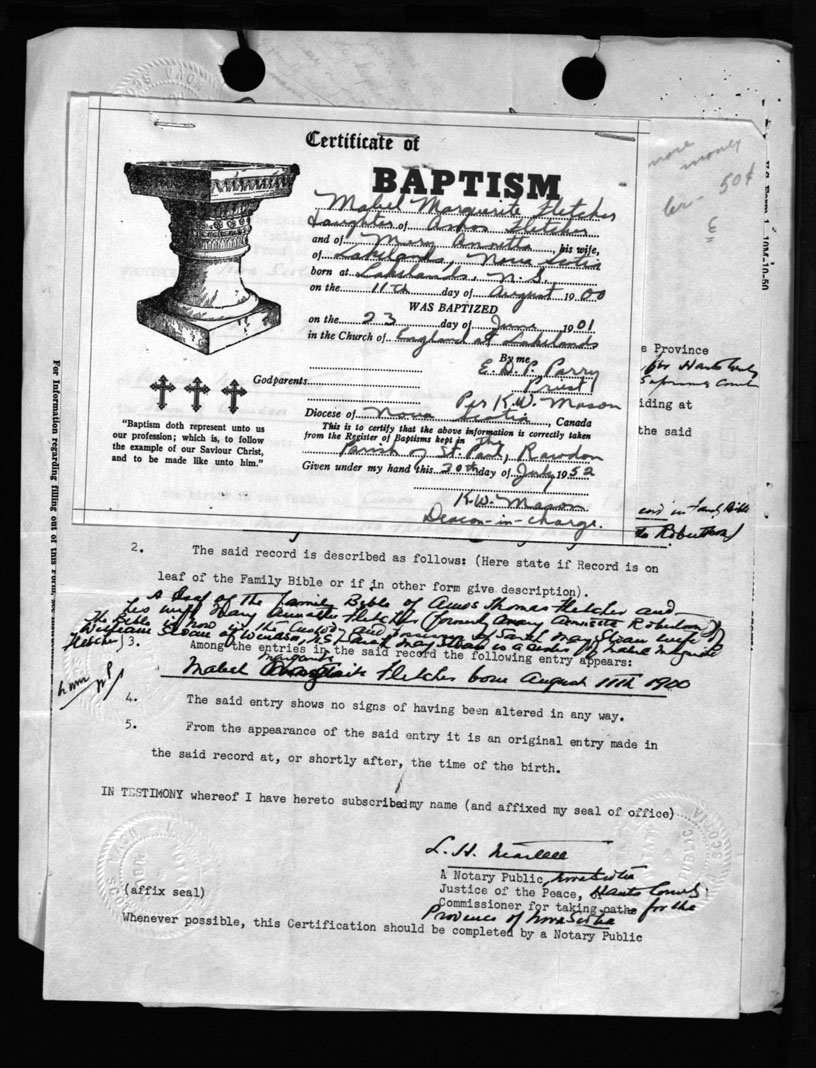 more
money
50¢
Certificate of
BAPTISM
Mabel Marguerite Fletcher
Daughter of Amos Fletcher
and of Mary Annetta, his wife,
of Lakelands, Nova Scotia
born at Lakelands, N.S.
on the 11th day of August 1900
WAS BAPTIZED
on the 23 day of June 1901
in the Church of England at Lakelands
By me
E. D. P. Parry
Priest
Godparents
Per K.W. Mason
Diocese of Nova Scotia, Canada
"Baptism doth represent unto us
our profession; which is, to follow
the example of our Saviour Christ,
and to be made like unto him."
This is to certify that the above information is correctly taken
from the Register of Baptisms kept in the
Parish of St. Paul, Rawdon
Given under my hand this 20th day of July 1952
K.W. Mason
Deacon-in-charge.
s Province
for Hants County
Supreme Court
iding at
the said
in Family Bible
Robertson)
For Information regarding filling out of this Form, see
2. The said record is described as follows: (Here state if Record is on
leaf of the Family Bible or if in other form give description).
A leaf of the family Bible of Amos Thomas Fletcher and
his wife Mary Annetta Fletcher (formerly Mary Annetta Robertson)
The Bible is now in the custody and possession of Sarah May Sloan wife of
William Sloan of Windsor, N.S. Sarah May Sloan is a sister of Mabel Marguerite
Fletcher)
3. Among the entries in the said record the following entry appears:
Marguerite
Mabel Fletcher born August 11th 1900
4. The said entry shows no signs of having been altered in any way.
5. From the appearance of the said entry it is an original entry made in
the said record at, or shortly after, the time of the birth.
IN TESTIMONY whereof I have hereto subscribed my name (and affixed my seal of office)
L. H.
A Notary Public, Nova Scotia
Justice of the Peace, Hants County
Commissioner for taking oaths for the
Province of Nova Scotia
(affix seal)
Whenever possible, this Certification should be completed by a Notary Public